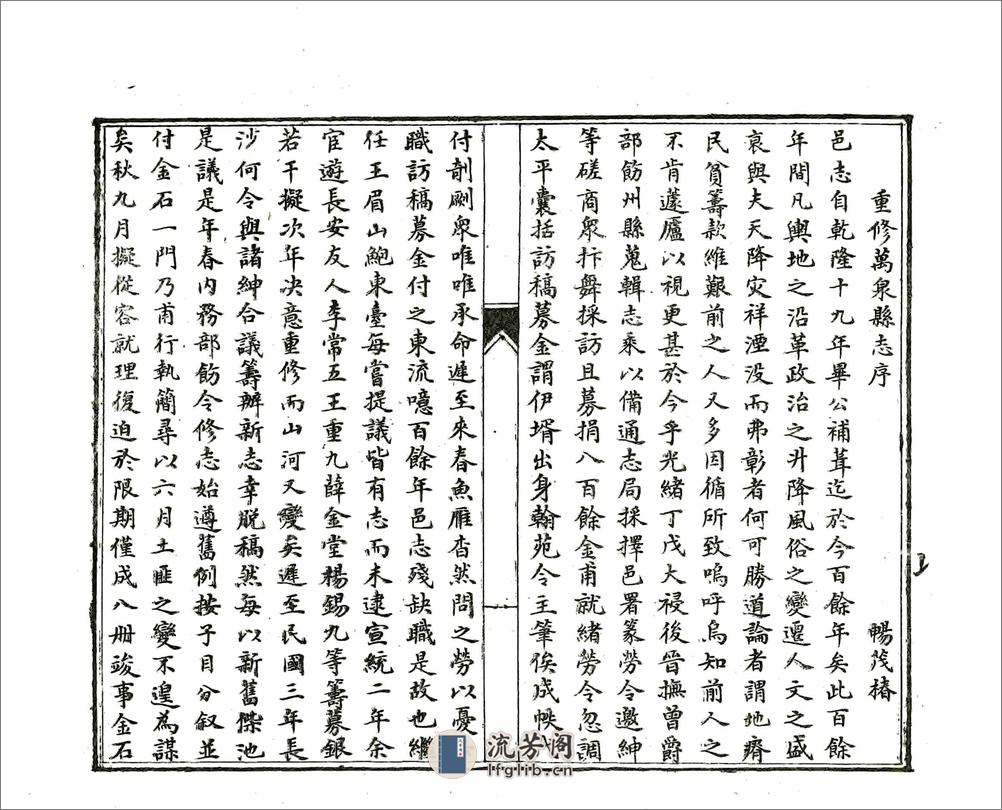 重修萬泉縣志序
暢茂椿
邑志自乾隆十九年畢公補葺迄於今百餘年矣此百餘
年間凡輿地之沿革政治之升降風俗之變遷人文之盛
衰與夫天降灾祥湮没而弗彰者何可勝道論者謂地瘠
民貧籌款維艱前之人又多因循所致嗚呼烏知前人之
不肯蘧廬以視更甚於今乎光緒丁戊大祲後晉撫曾爵
部飭州縣蒐輯志乘以備通志局採擇邑署篆勞令邀紳
等磋商衆抃舞採訪且募捐八百餘金甫就緒勞令忽調
太平囊括訪稿募金謂伊壻出身翰苑令主筆俟成帙
付剞劂衆唯唯承命遲至來春魚雁杳然問之勞以憂
職訪稿募金付之東流噫百餘年邑志殘缺職是故也繼
任王眉山鮑東臺每嘗提議皆有志而未逮宣統二年余
宦遊長安友人李常五王重九薛金堂楊錫九等籌募銀
若干擬次年决意重修而山河又變矣遲至民國三年長
沙何令與諸紳合議籌辦新志幸脱稿然每以新舊傑池
是議是年春内務部飭令修志始遵舊例按子目分叙並
付金石一門乃甫行執簡尋以六月土匪之變不遑為謀
矣秋九月擬從容就理復迫於限期僅成八册竣事金石
流芳阁
lfglib.cn